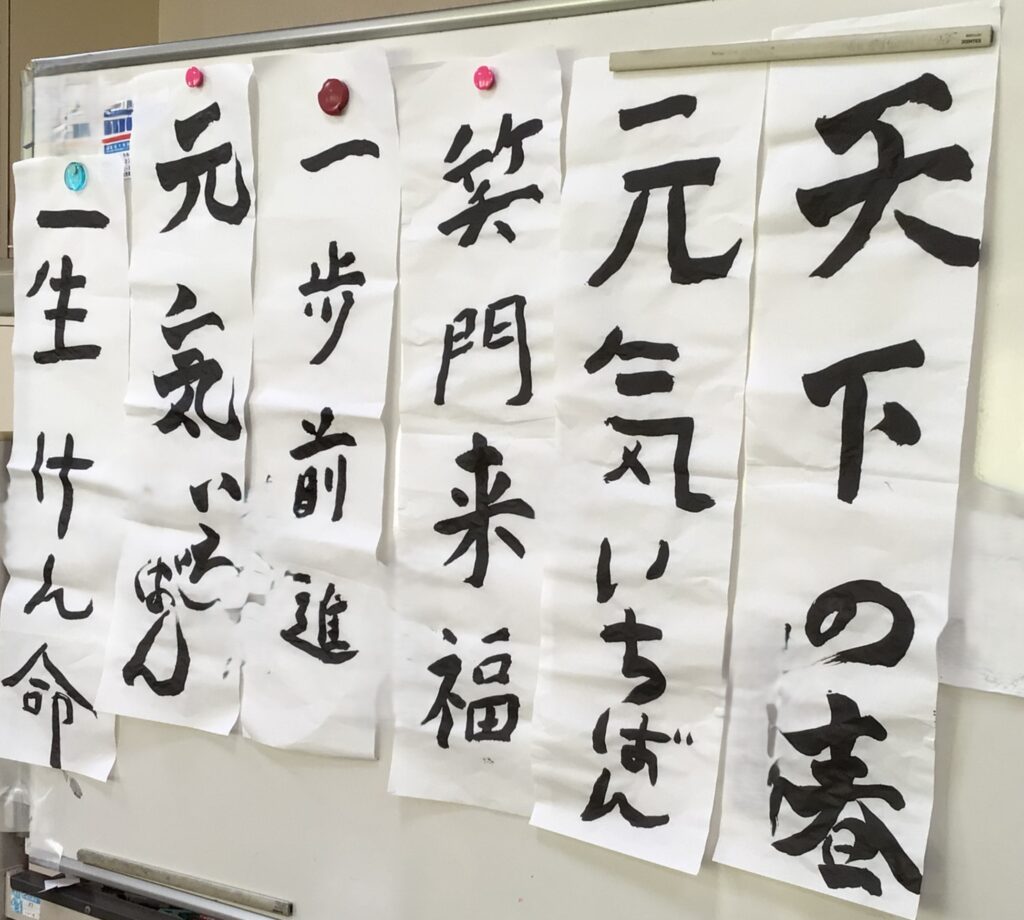 天下の春
元気いちばん
笑門来福
一歩前進
元気いちばん
一生けん命